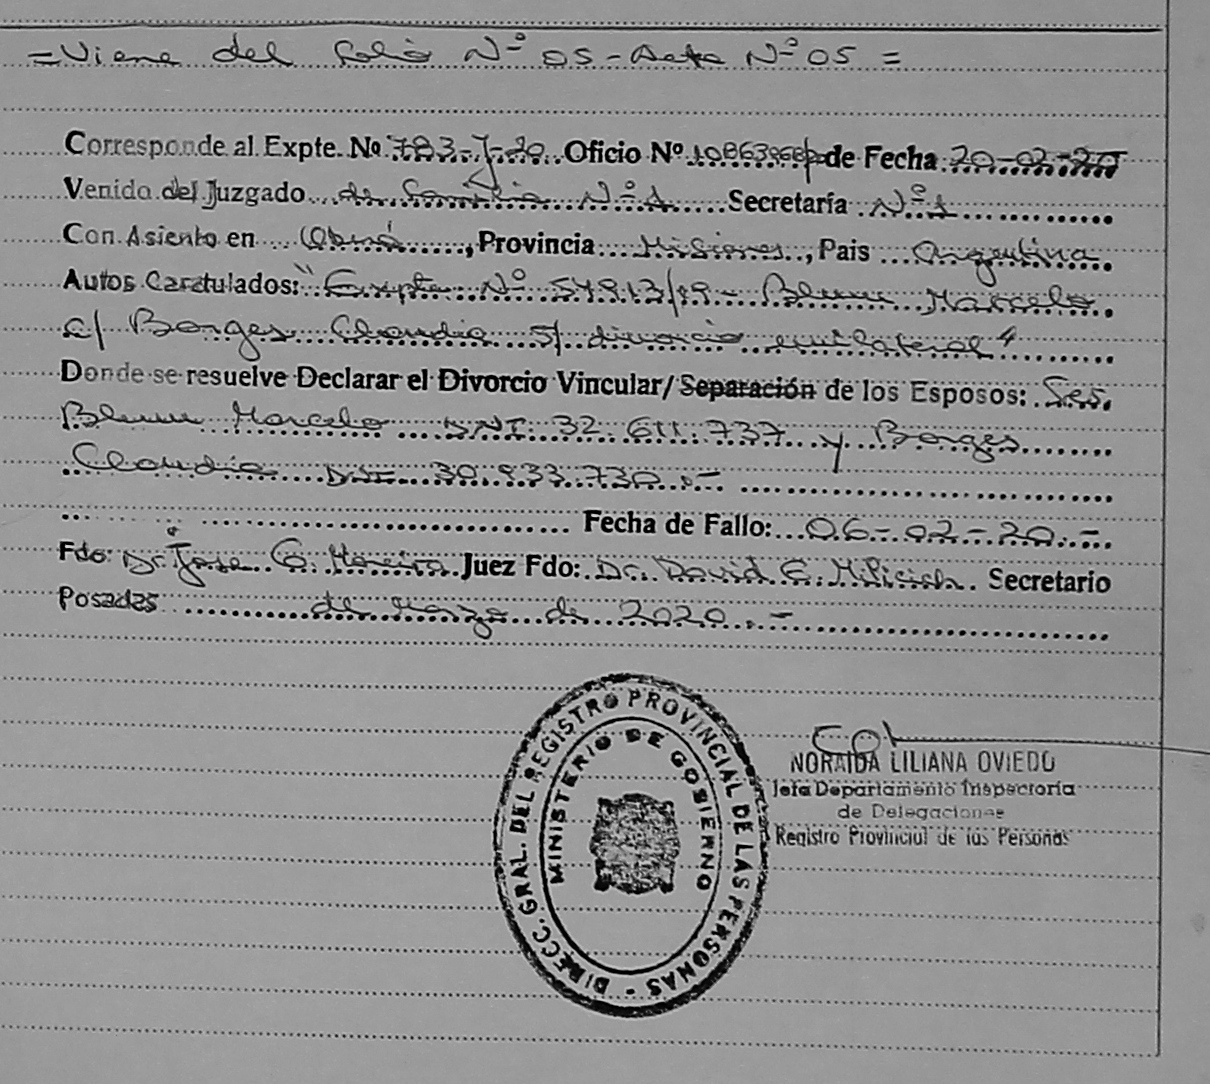 = Viene del folio Nº 05 - Acta Nº 05 =
Corresponde al Expte. Nº 783-J-20 Oficio Nº de Fecha 20-02-20
Venido del Juzgado de Familia Nº 1 Secretaría Nº 1
Con Asiento en Oberá, Provincia Misiones, Pais Argentina
Autos Caratulados: "Expte Nº 54913/19 - Blume Marcelo
c/ Borges Claudia s/ divorcio unilateral"
Donde se resuelve Declarar el Divorcio Vincular/ Separación de los Esposos: Sres.
Blume Marcelo DNI 32.611.737 y Borges
Claudia DNI 30.933.730.-
Fecha de Fallo: 06-02-20.-
Fdo: Dr. Jose G. Moreira Juez Fdo: Dr. David E. Secretario
Posadas de Marzo de 2020.-
DIRECC. GRAL. DEL REGISTRO PROVINCIAL DE LAS PERSONAS -
MINISTERIO DE GOBIERNO
NORAIDA LILIANA OVIEDO
Jefa Departamento Inspectoría
de Delegaciones
Registro Provincial de las Personas